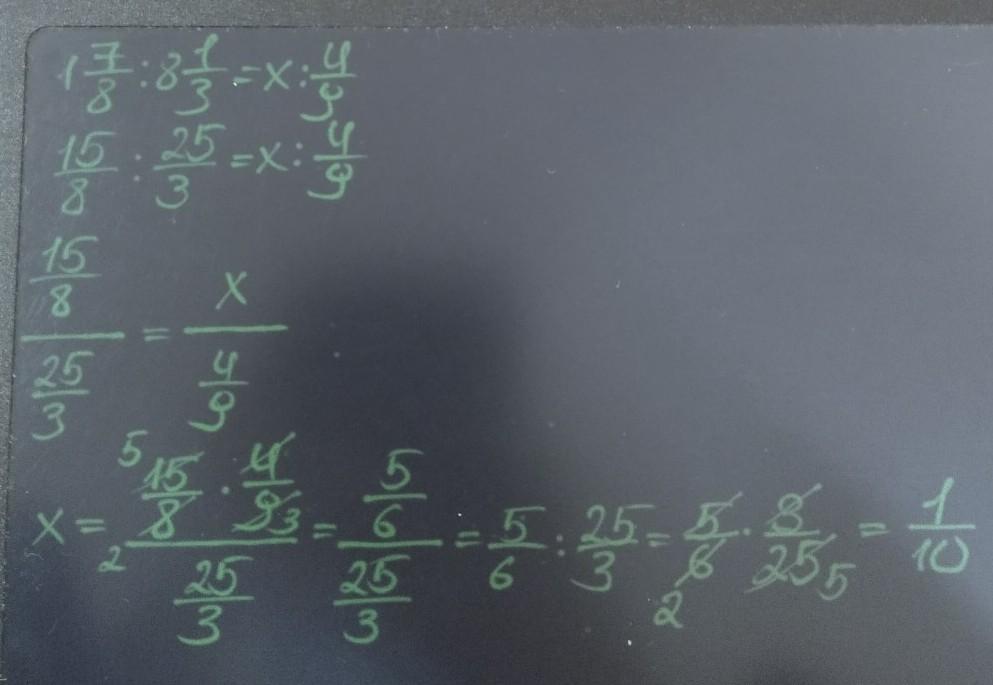 1 7/8 : 8 1/3 = x : 4/9
15/8 : 25/3 = x : 4/9
15/8 / 25/3 = x / 4/9
x = 5 15/8 2 · 4/9 3 / 25/3 = 5/6 / 25/3 = 5/6 : 25/3 = 5/6 2 · 3/25 5 = 1/10